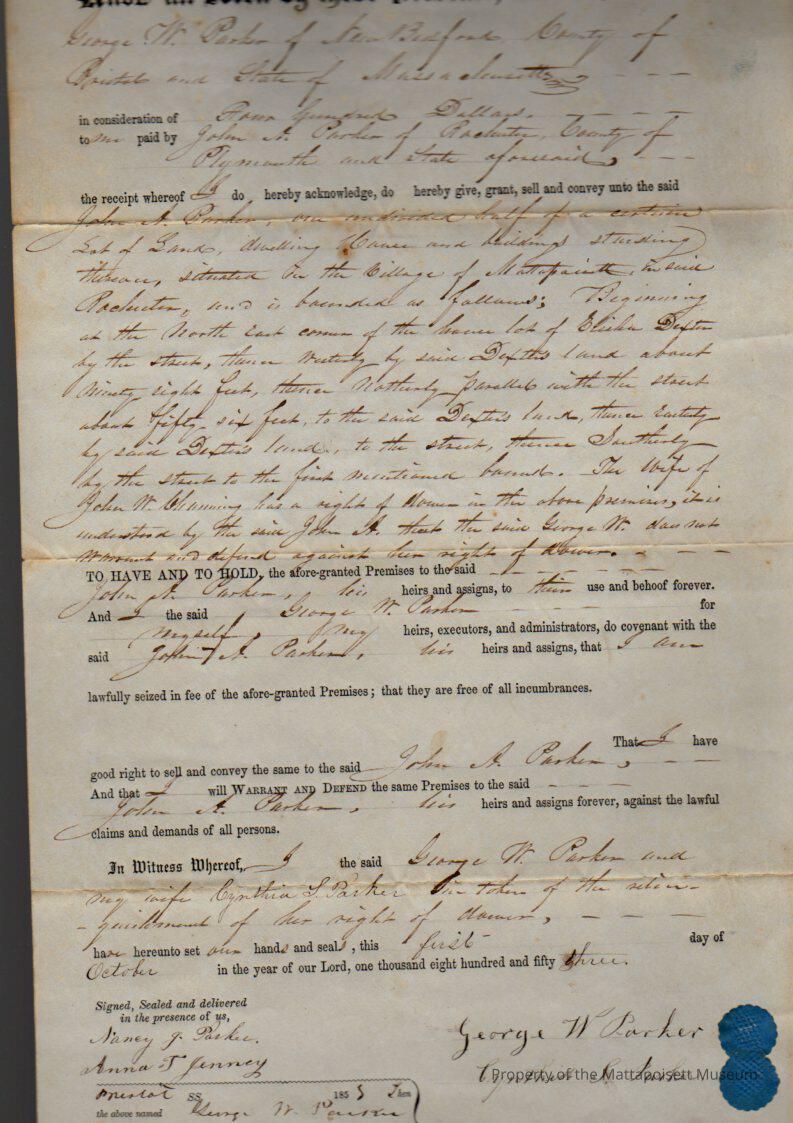 Know all Men by these Presents,
George W. Parker of New Bedford County of
Bristol and State of Massachusetts
in consideration of Four Hundred Dollars.
to me paid by John A. Parker of Rochester, County of
Plymouth and State aforesaid,
the receipt whereof I do hereby acknowledge, do hereby give, grant, sell and convey unto the said
John A. Parker, one undivided half of a certain
Lot of Land, dwelling House and buildings standing
thereon, situated in the Village of Mattapoisett, in said
Rochester, and is bounded as follows; Beginning
at the North East corner of the house lot of Elisha Dexter
by the street, thence Westerly by said Dexters land about
Ninety eight feet, thence Notherly parallel with the street
about fifty six feet, to the said Dexters land, thence Easterly
by said Dexters land, to the street, thence Southerly
by the street to the first mentioned bound. The Wife of
John W. Channing has a right of dower in the above premises, it is
understood by the said John A. that the said George W. does not
warrant and defend against her right of dower.
TO HAVE AND TO HOLD, the afore-granted Premises to the said
John A. Parker, his heirs and assigns, to their use and behoof forever.
And I the said George W. Parker for
myself, my heirs, executors, and administrators, do covenant with the
said John A. Parker, his heirs and assigns, that I am
lawfully seized in fee of the afore-granted Premises; that they are free of all incumbrances.
That I have
good right to sell and convey the same to the said John A. Parker,
And that I will WARRANT AND DEFEND the same Premises to the said
John A. Parker, his heirs and assigns forever, against the lawful
claims and demands of all persons.
In Witness Whereof, I the said George W. Parker and
my wife Cynthia S. Parker in token of the relin-
-quishment of her right of dower,
have hereunto set our hands and seals, this first day of
October in the year of our Lord, one thousand eight hundred and fifty three.
Signed, Sealed and delivered
in the presence of us,
Nancy J. Parker.
Anna T Jenney
George W Parker
Cynthia S. Parker
Property of the Mattapoisett Museum
Bristol SS. 1853 Then
the above named George W. Parker